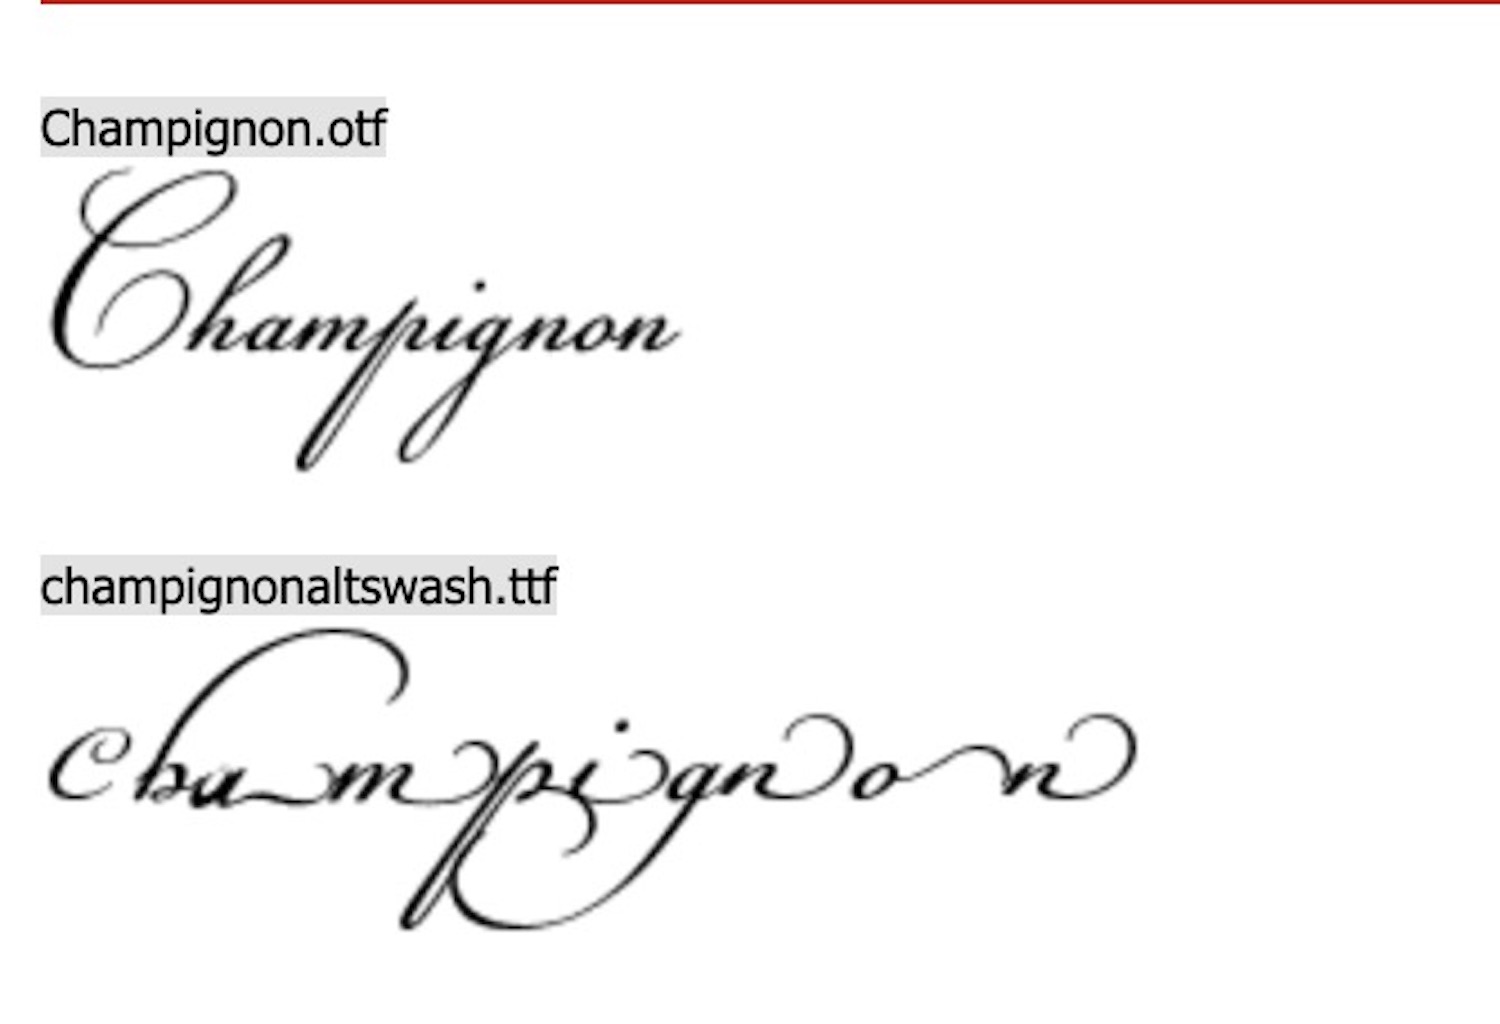 Champignon.otf
Champignon
champignonaltswash.ttf
champignon